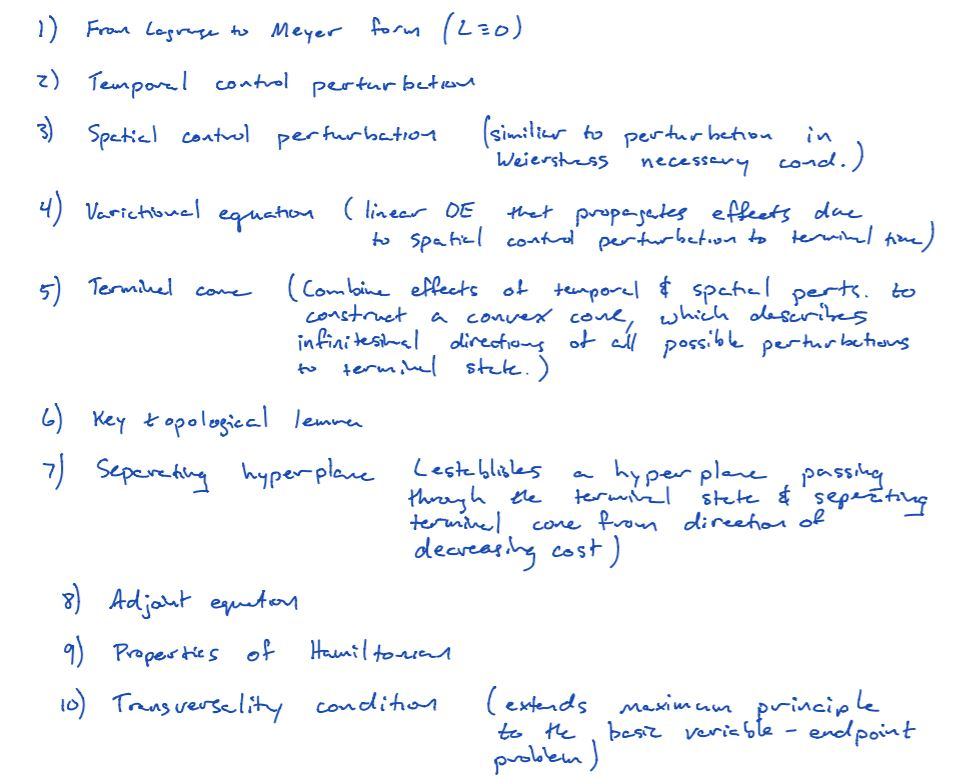 1) From Lagrange to Meyer form (L≡0)
2) Temporal control perturbation
3) Spatial control perturbation (similiar to perturbation in
Weierstrass necessary cond.)
4) Variational equation (linear DE that propagates effects due
to spatial control perturbation to terminal time)
5) Terminal cone (Combine effects of temporal & spatial perts. to
construct a convex cone, which describes
infinitesimal directions of all possible perturbations
to terminal state.)
6) Key topological lemma
7) Separating hyperplane (establishes a hyperplane passing
through the terminal state & seperating
terminal cone from direction of
decreasing cost)
8) Adjoint equation
9) Properties of Hamiltonian
10) Transversality condition (extends maximum principle
to the basic variable-endpoint
problem)